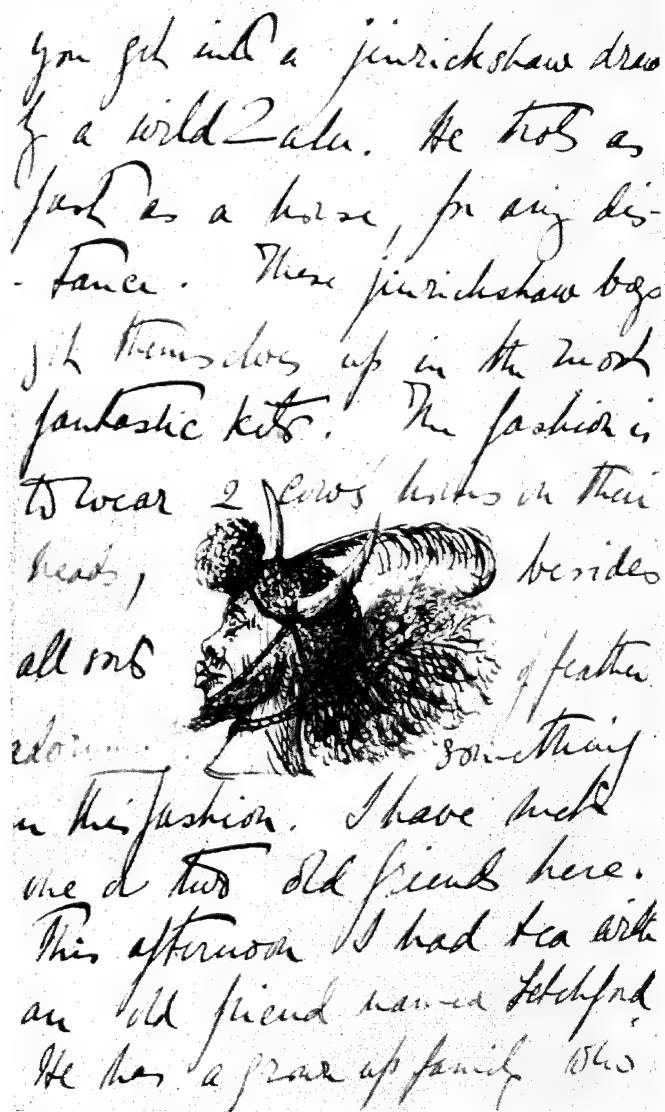 you get into a jinrickshaw draw
by a wild Zulu. He trots as
fast as a horse, for any dis-
- tance. These jinrickshaw boys
get themselves up in the most
fantastic kits. The fashion is
to wear 2 cows' horns on their
heads, besides
all sorts of feather
something
in this fashion. I have met
one or two old friends here.
This afternoon I had tea with
an old friend named Letchford
He has a grown up family who